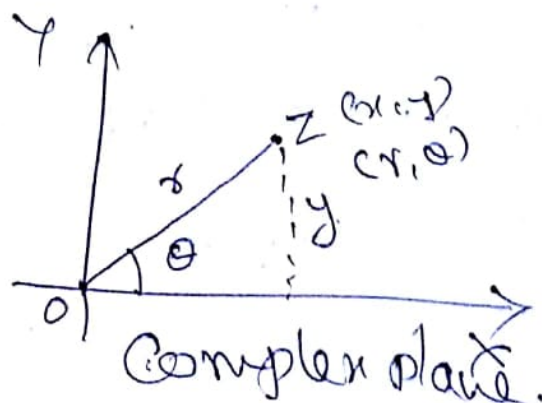 Y
Z (x, y)
(r, θ)
r
y
θ
O
X
Complex plane.